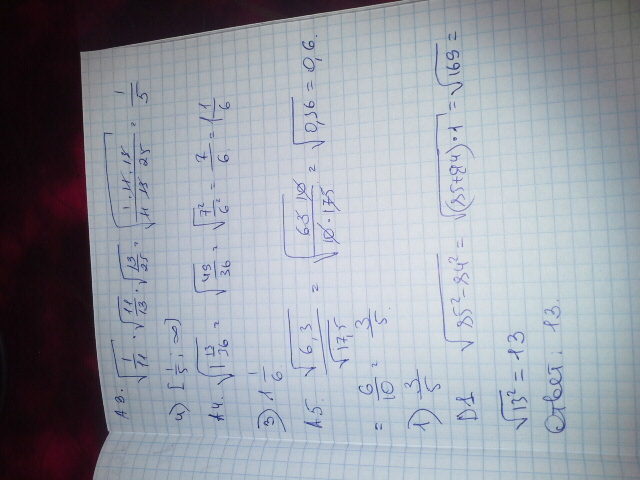 А3. √(1/11) · √(11/13) · √(13/25) = √(1·11·13/11·13·25) = 1/5
4) [1/5; ∞)
А4. √(1 13/36) = √(49/36) = √(7²/6²) = 7/6 = 1 1/6
3) 1 1/6
А5. √6,3/√17,5 = √(63·10/10·175) = √0,36 = 0,6.
= 6/10 = 3/5.
1) 3/5
D1 √85²-84² = √(85+84)·1 = √169 =
√13² = 13
Ответ: 13.